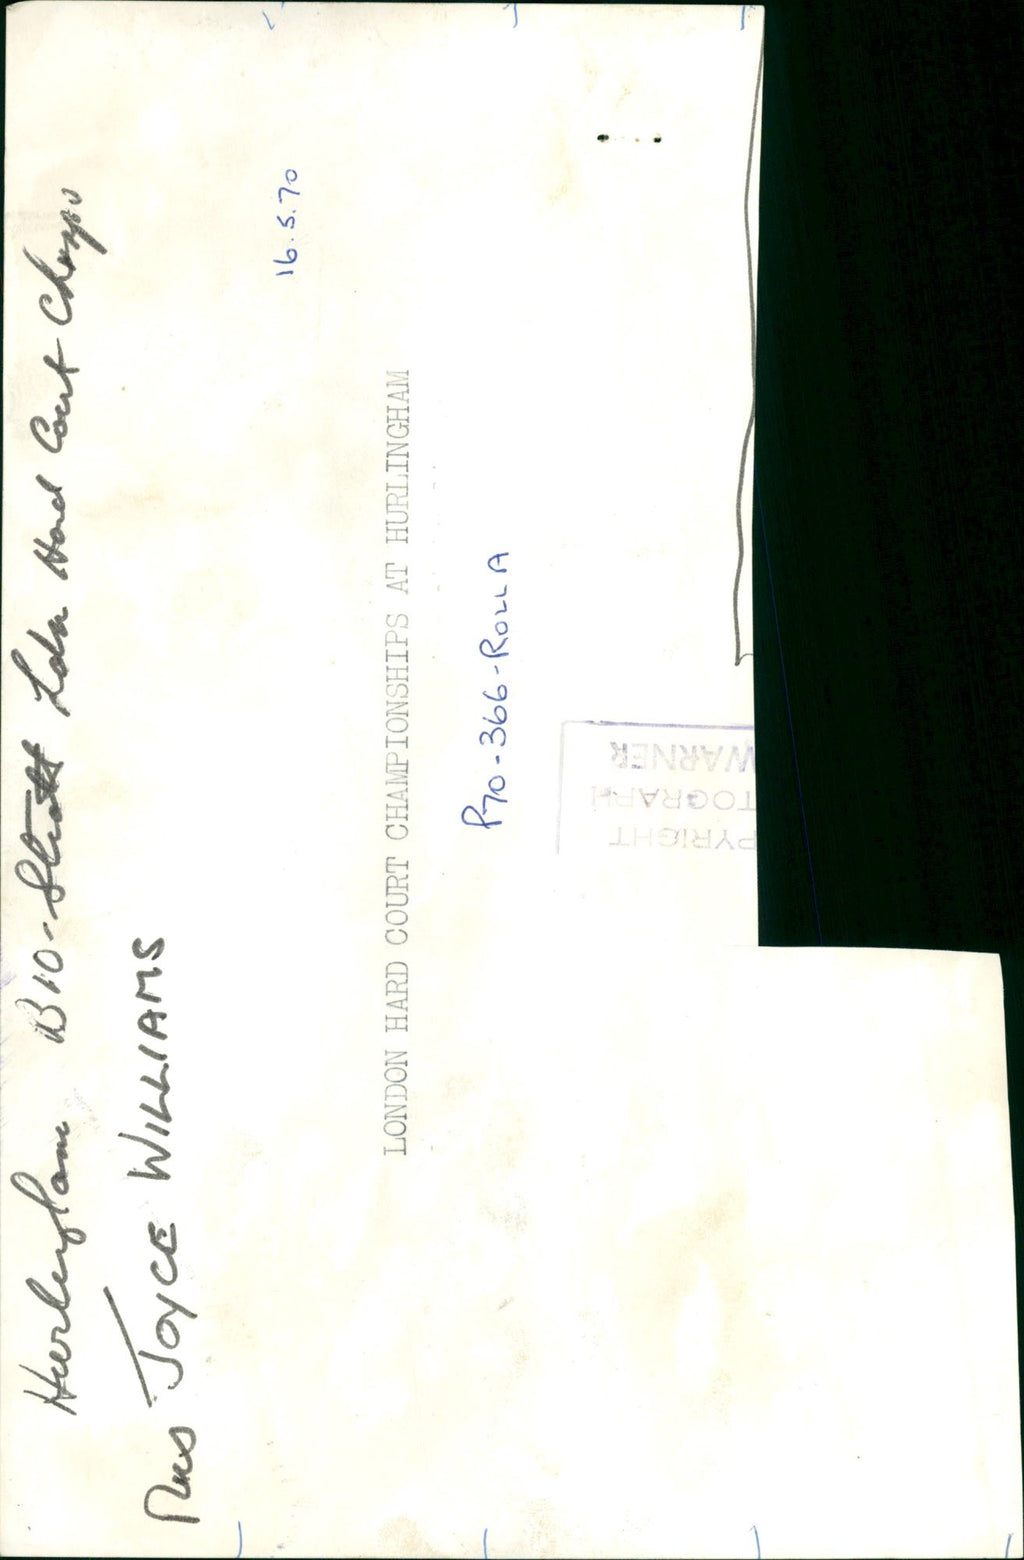 Hurlingham B10- Stratt Ldn Hard Court Champs
Mrs JOYCE WILLIAMS
16.5.70
LONDON HARD COURT CHAMPIONSHIPS AT HURLINGHAM
P70-366-ROLL A
PYRIGHT
TOGRAPH
WARNER